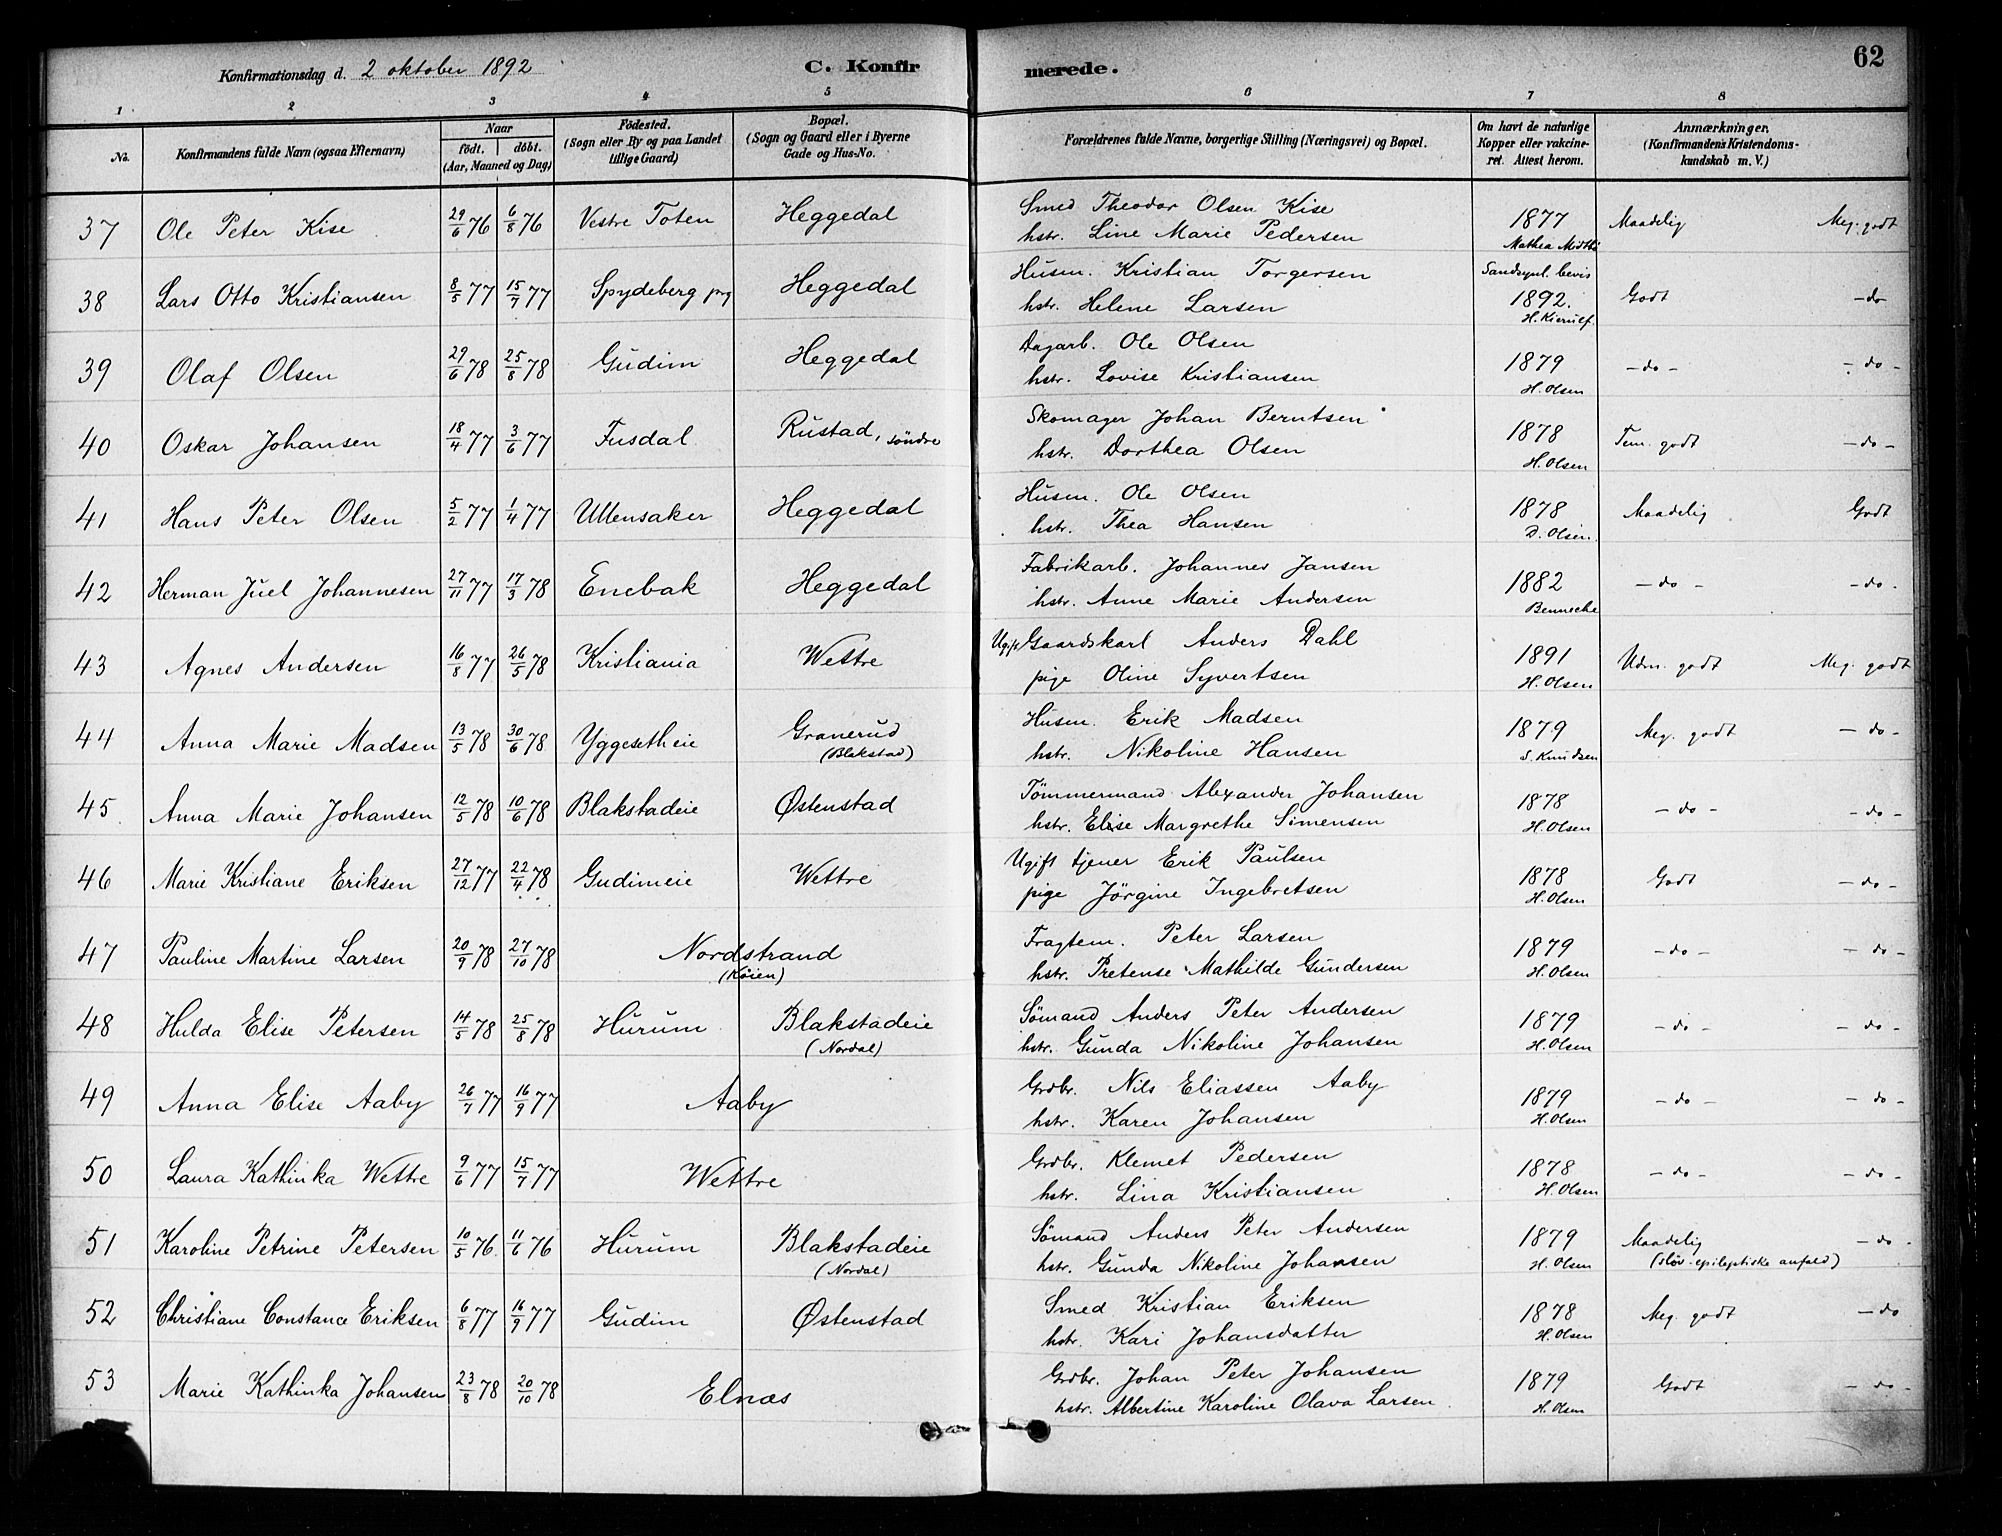 Konfirmationsdag d. 2 oktober 1892 C. Konfirmerede. 62
1 2 3 4 5 6 7 8
No. Konfirmandens fulde Navn (ogsaa Efternavn) Naar födt. döbt. (Aar, Maaned og Dag) Födested. (Sogn eller By og paa Landet tillige Gaard) Bopæl. (Sogn og Gaard eller i Byerne Gade og Hus-No. Forældrenes fulde Navne, borgerlige Stilling (Næringsvei) og Bopæl. Om havt de naturlige Kopper eller vakcineret. Attest herom. Anmærkninger. (Konfirmandens Kristendomskundskab m. V.)
37 Ole Peter Kise 29/6 76 6/8 76 Vestre Toten Heggedal Smed Theodor Olsen Kise 1877 Maadelig Meg. godt
hstr. Line Marie Pedersen Mathea
38 Lars Otto Kristiansen 8/5 77 15/7 77 Spydeberg prg Heggedal Husm. Kristian Torgersen Sandsynl. bevis
hstr. Helene Larsen 1892. H. Kierulf. Godt - do
39 Olaf Olsen 29/6 78 25/8 78 Gudim Heggedal Dagarb. Ole Olsen 1879 - do - - do -
hstr. Lovise Kristiansen H. Olsen
40 Oskar Johansen 18/4 77 3/6 77 Fusdal Rustad, söndre Skomager Johan Berntsen 1878 Tem. godt - do -
hstr. Dorthea Olsen H. Olsen
41 Hans Peter Olsen 5/2 77 1/4 77 Ullensaker Heggedal Husm. Ole Olsen 1878 Maadelig Godt
hstr. Thea Hansen D. Olsen
42 Herman Juel Johannesen 27/11 77 17/3 78 Enebak Heggedal Fabrikarb. Johannes Jansen 1882 - do - - do -
hstr. Anne Marie Andersen Benneche
43 Agnes Andersen 16/8 77 26/5 78 Kristiania Wettre Ugift Gaardskarl Anders Dahl 1891 Udm. godt Meg. godt
pige Oline Syvertsen H. Olsen
44 Anna Marie Madsen 13/5 78 30/6 78 Yggesetheie Granerud (Blakstad) Husm. Erik Madsen 1879 Meg. godt - do -
hstr. Nikoline Hansen S. Knudsen
45 Anna Marie Johansen 12/5 78 10/6 78 Blakstadeie Østenstad Tömmermand Alexander Johansen 1878 - do - - do -
hstr. Elise Margrethe Simensen H. Olsen
46 Marie Kristiane Eriksen 27/12 77 22/4 78 Gudimeie Wettre Ugift tjener Erik Paulsen 1878 Godt - do -
pige Jörgine Ingebretsen H. Olsen
47 Pauline Martine Larsen 20/9 78 27/10 78 Nordstrand (Köien) Fragtem. Peter Larsen 1879 - do - - do -
hstr. Pretense Mathilde Gundersen H. Olsen
48 Hulda Elise Petersen 14/5 78 25/8 78 Hurum Blakstadeie (Nordal) Sömand Anders Peter Andersen 1879 - do - - do -
hstr. Gunda Nikoline Johansen H. Olsen
49 Anna Elise Aaby 26/7 77 16/9 77 Aaby Grdbr. Nils Eliassen Aaby 1879 - do - - do -
hstr. Karen Johansen H. Olsen
50 Laura Kathinka Wettre 9/6 77 15/7 77 Wettre Grdbr. Klemet Pedersen 1878 - do - - do -
hstr. Lina Kristiansen H. Olsen
51 Karoline Petrine Petersen 10/5 76. 11/6 76 Hurum Blakstadeie (Nordal) Sömand Anders Peter Andersen 1879 Maadelig - do -
hstr. Gunda Nikoline Johansen H. Olsen (slöv - epileptiske anfald)
52 Christiane Constance Eriksen 6/8 77 16/9 77 Gudim Østenstad Smed Kristian Eriksen 1878 Meg. godt - do
hstr. Kari Johansdatter H. Olsen
53 Marie Kathinka Johansen 23/8 78 20/10 78 Elnæs Grdbr. Johan Peter Johansen 1879 Godt - do -
hstr. Albertine Karoline Olava Larsen H. Olsen